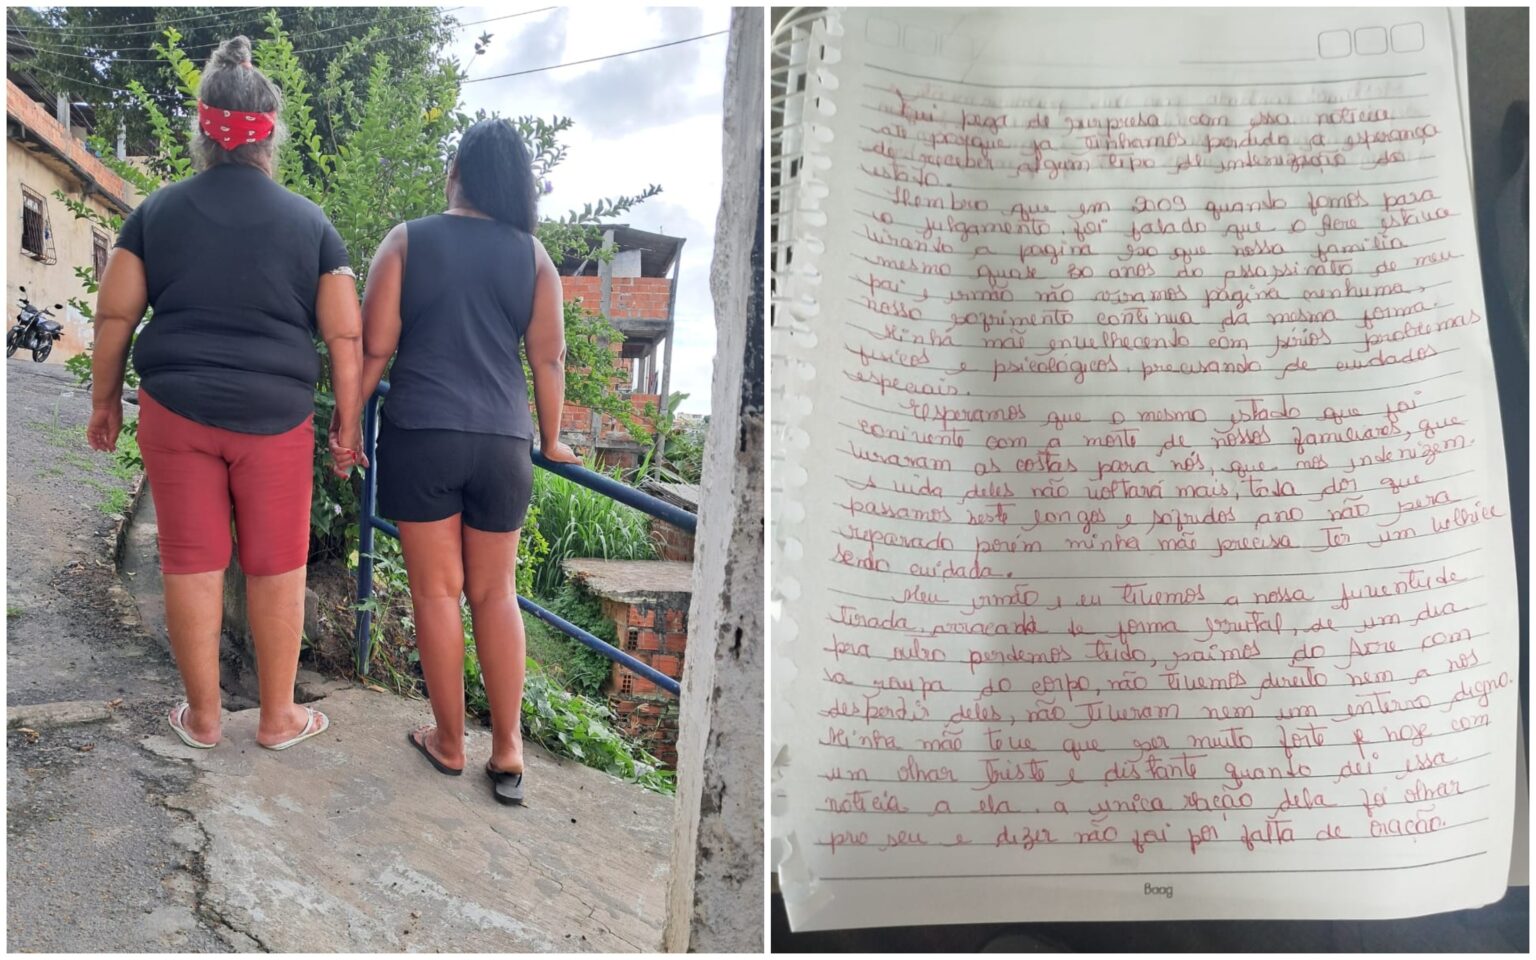 Fui pega de surpresa com essa noticia
até porque ja tinhamos perdido a esperança
de receber algum tipo de indenização do
estado.
Lembro que em 2009 quando fomos para
o julgamento foi falado que o Acre estava
virando a pagina so que nossa familia
mesmo quase 30 anos do assassinato de meu
pai e irmão não viramos página nenhuma,
nosso sofrimento continua da mesma forma
Minha mãe envelhecento com sérios problemas
fisicos e psicológicos, precisando de cuidados
especiais.
Esperamos que o mesmo estado que foi
conivente com a morte de nossos familiares, que
viraram as costas para nós, que nos indenizem.
A vida deles não voltará mais, toda dor que
passamos neste longos e sofridos ano não sera
reparado porém minha mãe precisa ter um velhice
sendo cuidada.
Meu irmão e eu tivemos a nossa juventude
tirada, arracada de forma brutal, de um dia
pra outro perdemos tudo, saimos do Acre com
sa roupa do corpo, não tivemos direito nem a nos
despedir deles, não tiveram nem um enterro digno.
Minha mãe teve que ser muito forte e hoje com
um olhar triste e distante quando dei essa
noticia a ela, a unica reação dela foi olhar
pro seu e dizer não foi por falta de oração.
Baag